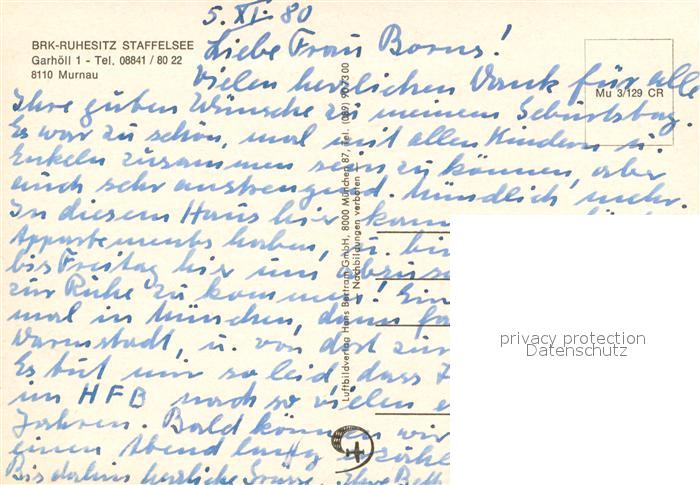 5. XI. 80
BRK-RUHESITZ STAFFELSEE
Garhöll 1 - Tel. 08841 / 80 22
8110 Murnau
Mu 3/129 CR
Liebe Frau Borns!
Vielen herzlichen Dank für alle
Ihre guten Wünsche zu meinem Geburtstag.
Es war zu schön, mal mit allen Kindern u.
Enkeln zusammen sein zu können, aber
auch sehr anstrengend. Mündlich mehr.
In diesem Haus hier kann
Appartements haben, u. bin
bis Freitag hier um
zur Ruhe zu kommen! Ein
mal in München, dann
Darmstadt, u. von dort zur
Es tut mir so leid, dass
im HFB nach so vielen
Jahren. Bald können wir
einen Abend lang
Bis dahin herzliche Grüsse, Ihre
Luftbildverlag Hans Bertram GmbH, 8000 München 87, Tel. (089) 907300
Nachbildungen verboten
privacy protection
Datenschutz